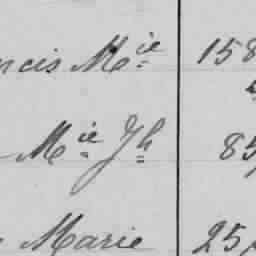 ncis M.ie 158
M.ie Jh 85
Marie 25